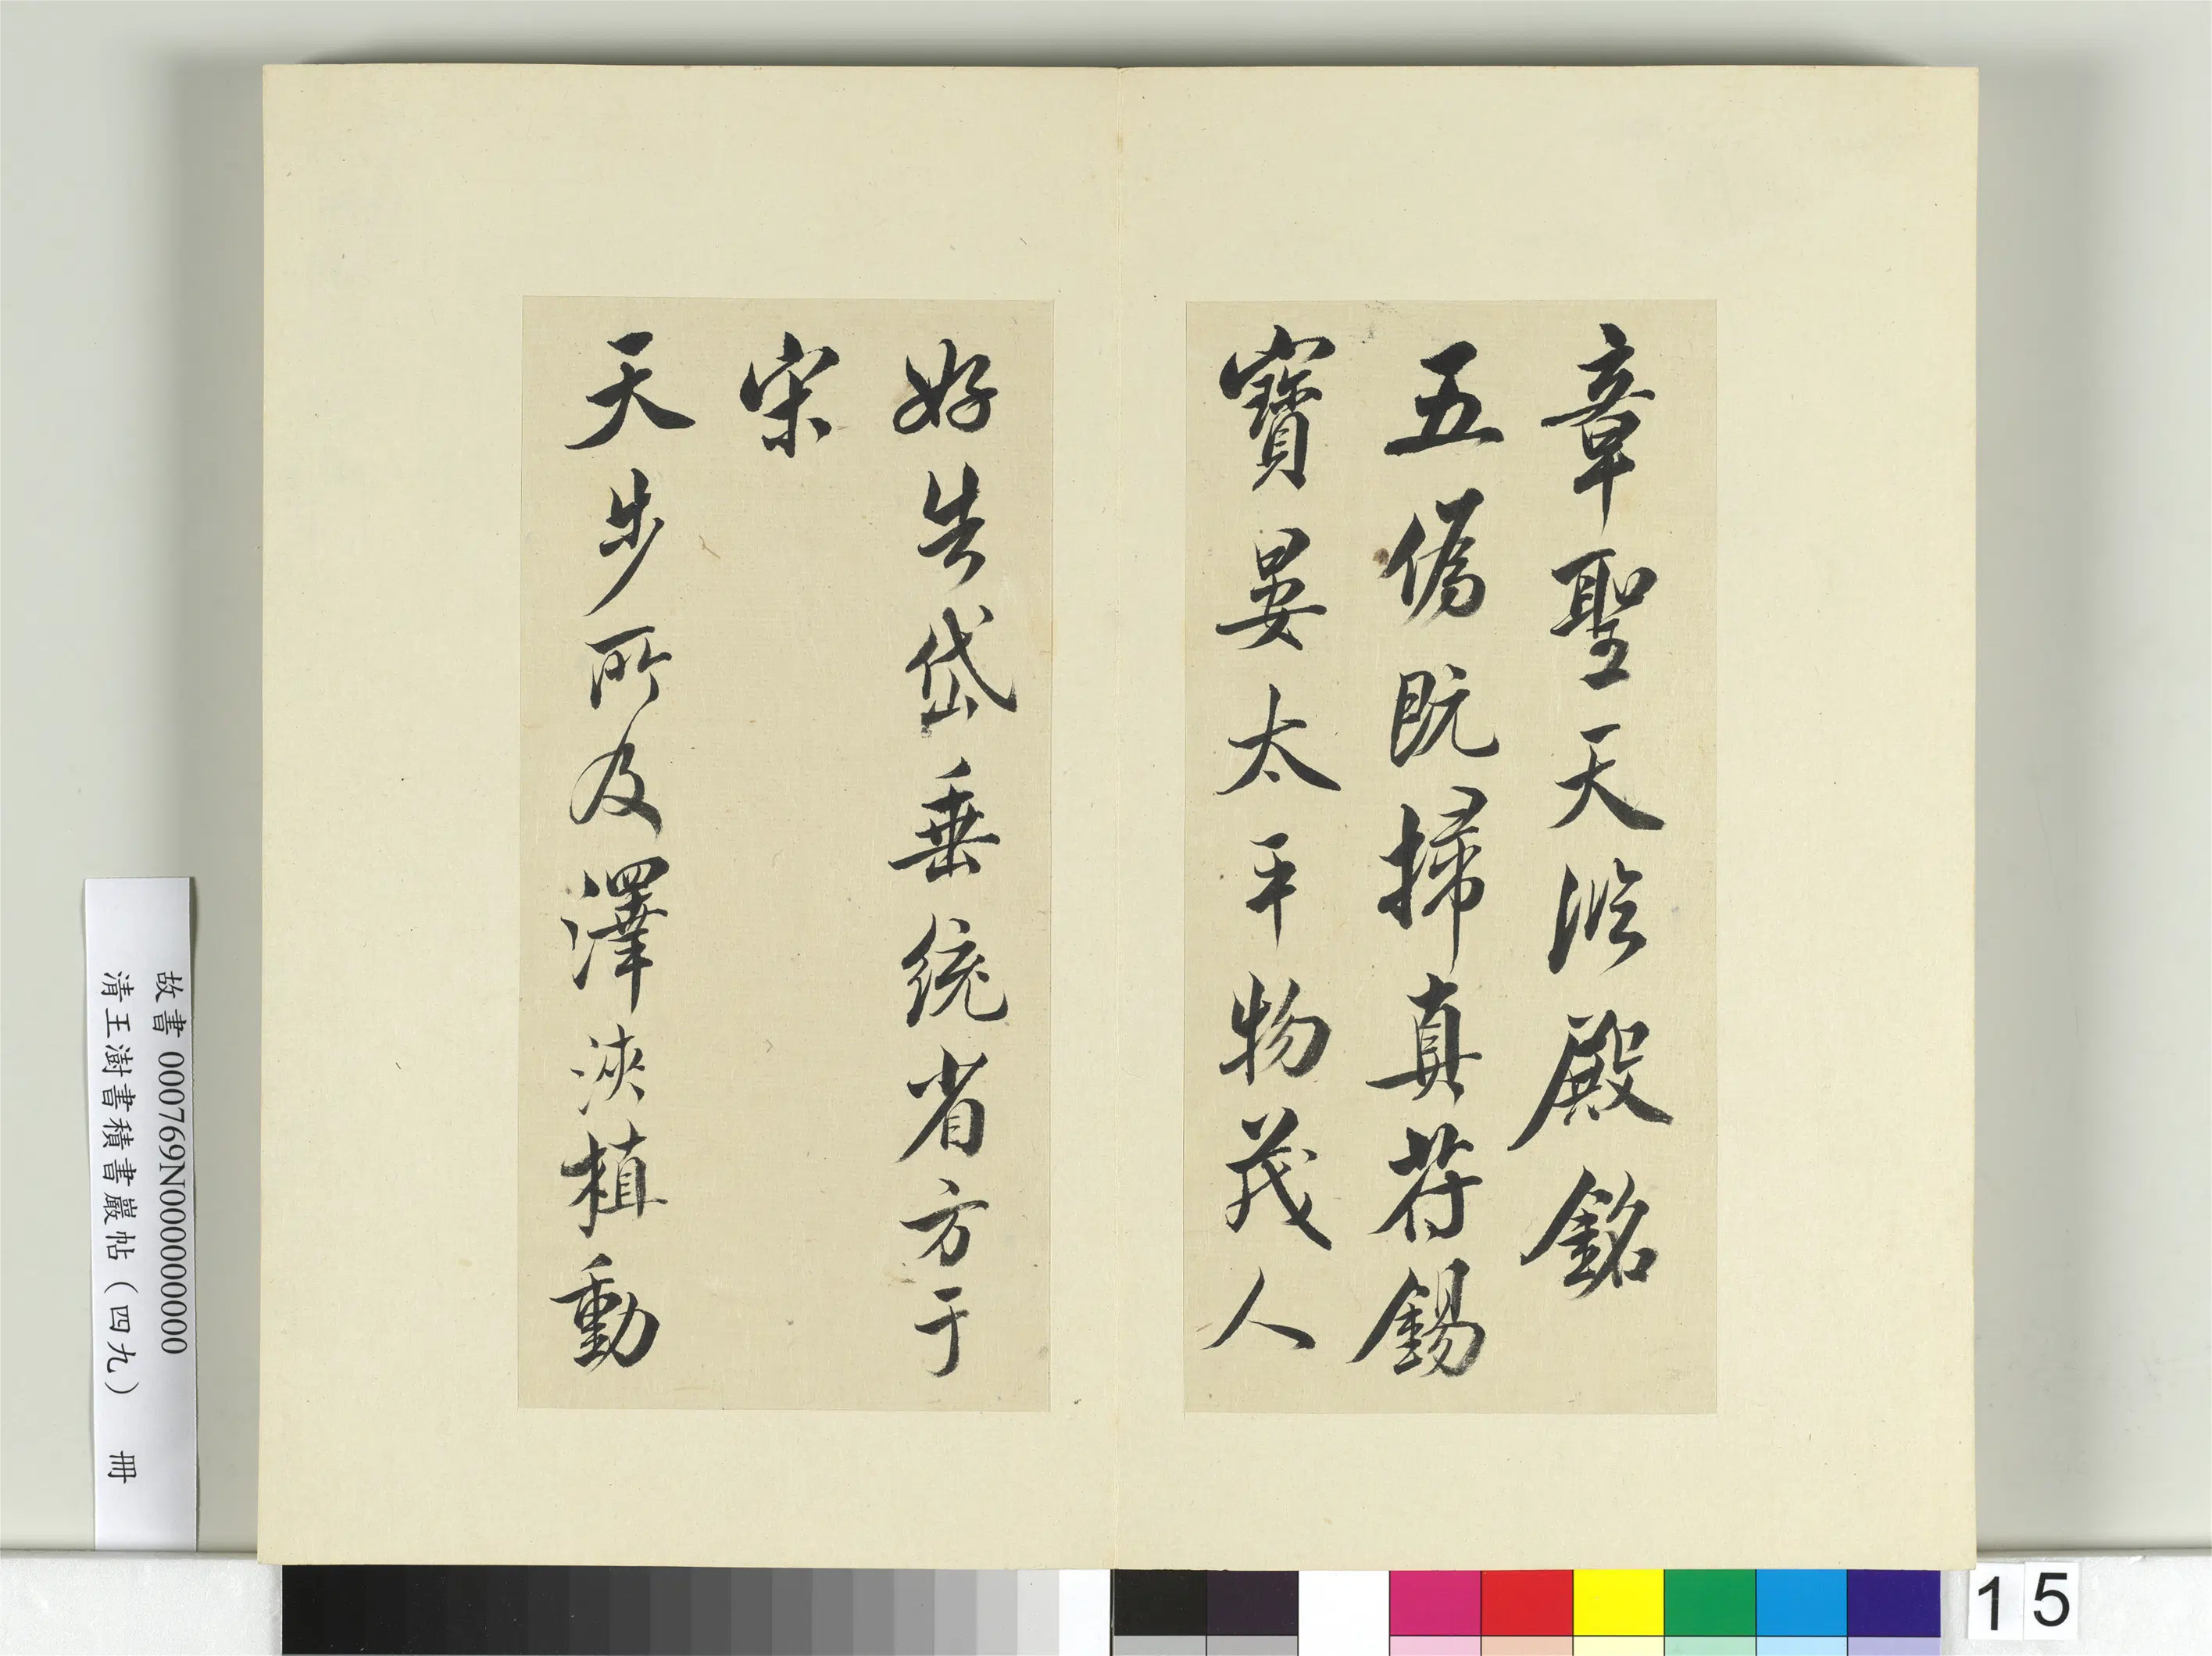 章聖天臨殿銘
五偽既掃真符錫
寶晏太平物茂人
好告岱垂統省方于
宋
天步所及澤浹植動
故書 000769N000000000
清王澍書積書巖帖(四九) 冊
15